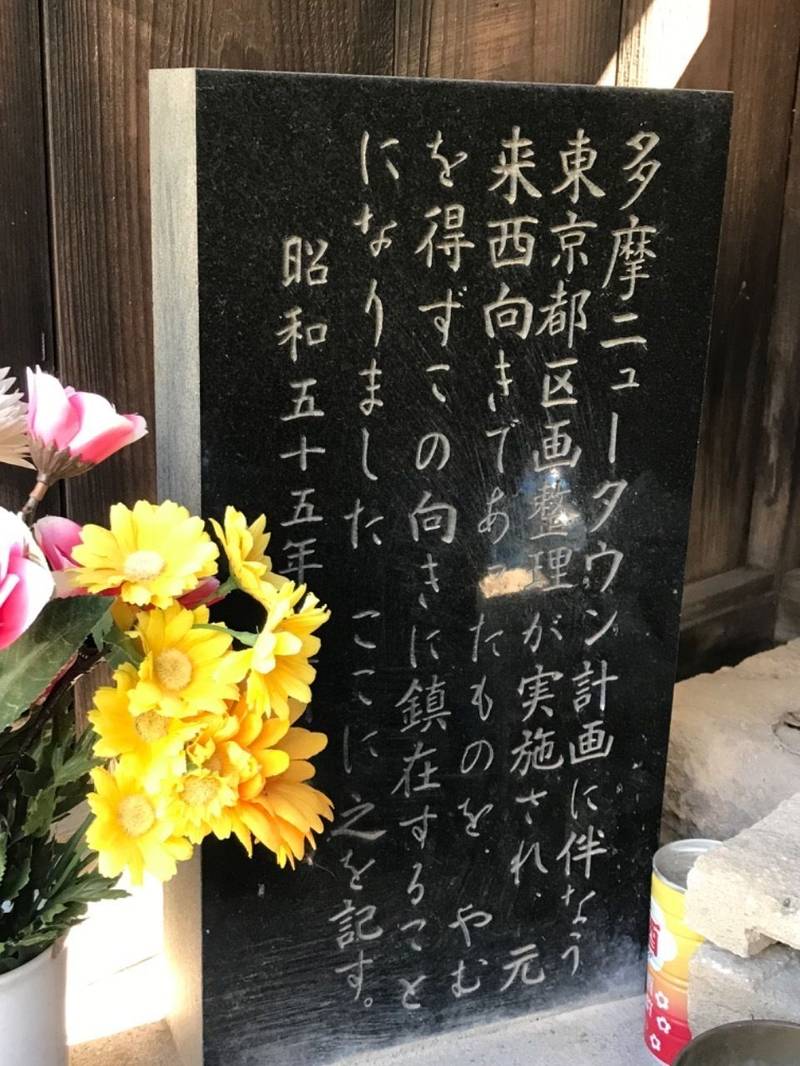 多摩ニュータウン計画に伴なう
東京都区画整理が実施され、元
来西向きであったものを、やむ
を得ずこの向きに鎮在すること
になりました ここに之を記す。
昭和五十五年